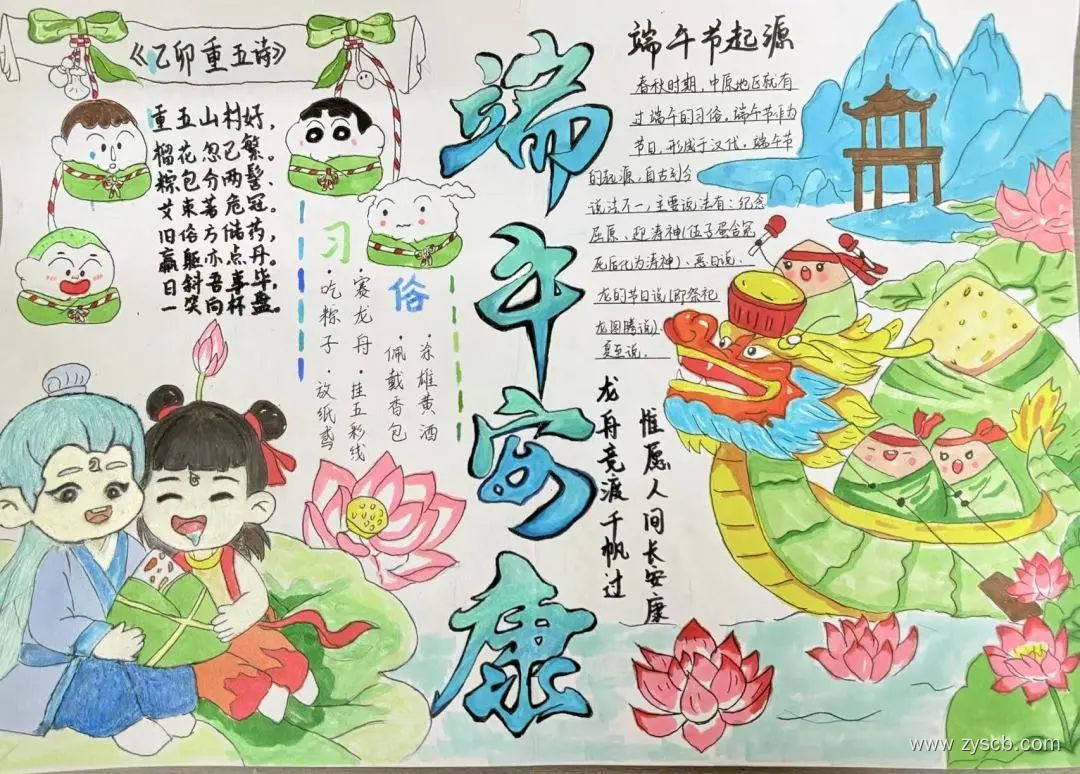 《乙卯重五诗》
重五山村好，
榴花忽已繁。
粽包分两髻，
艾束著危冠。
旧俗方储药，
羸躯亦点丹。
日斜吾事毕，
一笑向杯盘。
习俗
·赛龙舟
·吃粽子
·涂雄黄酒
·佩戴香包
·挂五彩线
·放纸鸢
端午安康
端午节起源
春秋时期，中原地区就有
过端午的习俗，端午节作为
节日，形成于汉代，端午节
的起源，自古到今
说法不一，主要说法有：纪念
屈原、迎涛神(伍子胥含冤
死后化为涛神)、恶日说、
龙的节日说(即祭祀
龙图腾说)、
夏至说.
龙舟竞渡千帆过
惟愿人间长安康
www.zyscb.com